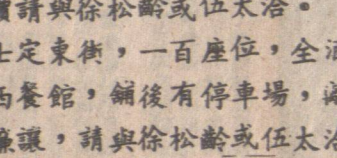 請與徐松齡或伍太洽。
士定東街，一百座位，全
西餐館，舖後有停車場，
廉讓，請與徐松齡或伍太洽